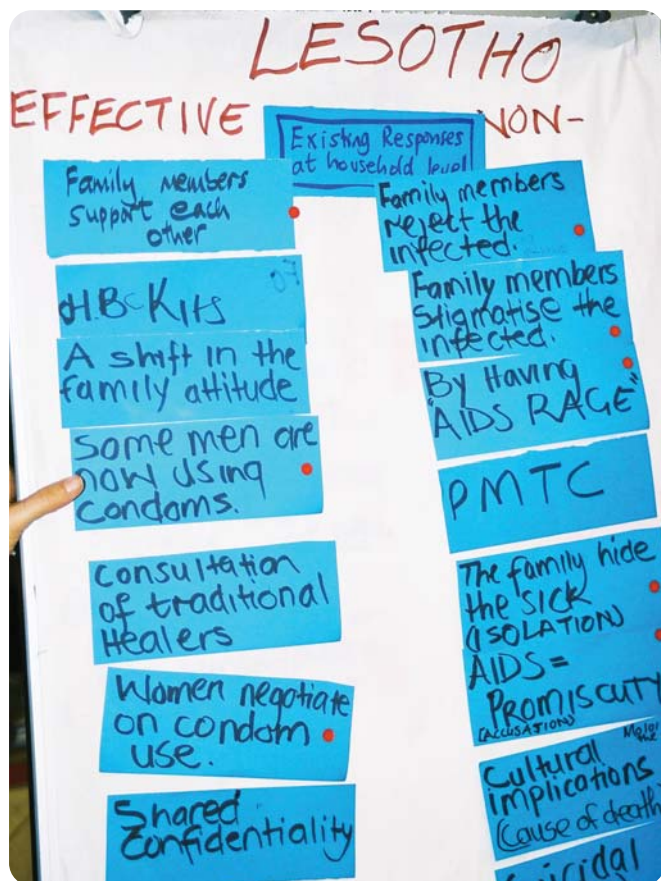 LESOTHO
EFFECTIVE
NON-
Existing Responses
at household level
Family members
support each
other
H.B.C Kits
A shift in the
family attitude
Some men are
now using
condoms.
Consultation
of traditional
Healers
Women negotiate
on condom
use.
Shared
Confidentiality
Family members
reject the
infected.
Family members
Stigmatise the
infected.
By Having
"AIDS RAGE"
PMTC
The family hide
the SICK
(ISOLATION)
AIDS =
PROMISCUTY
(ACCUSATION)
Cultural
implications
(Cause of death